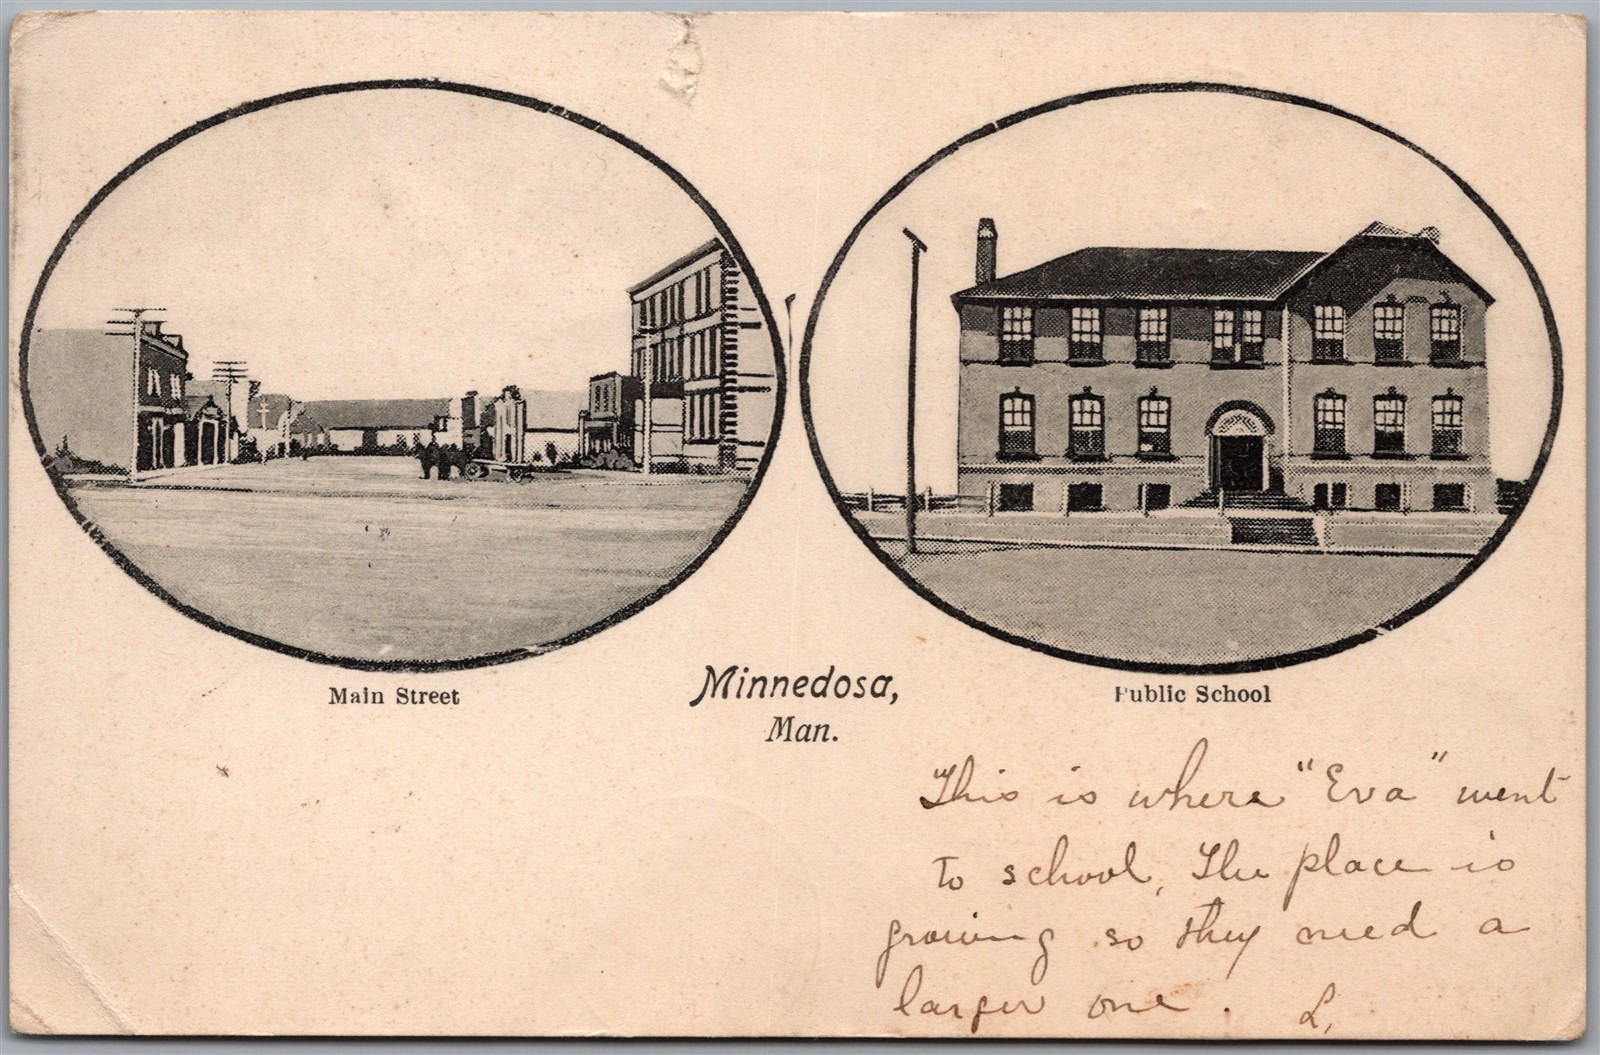 Main Street
Minnedosa,
Man.
Public School
This is where "Eva" went
to school, The place is
growing so they need a
larger one. L,